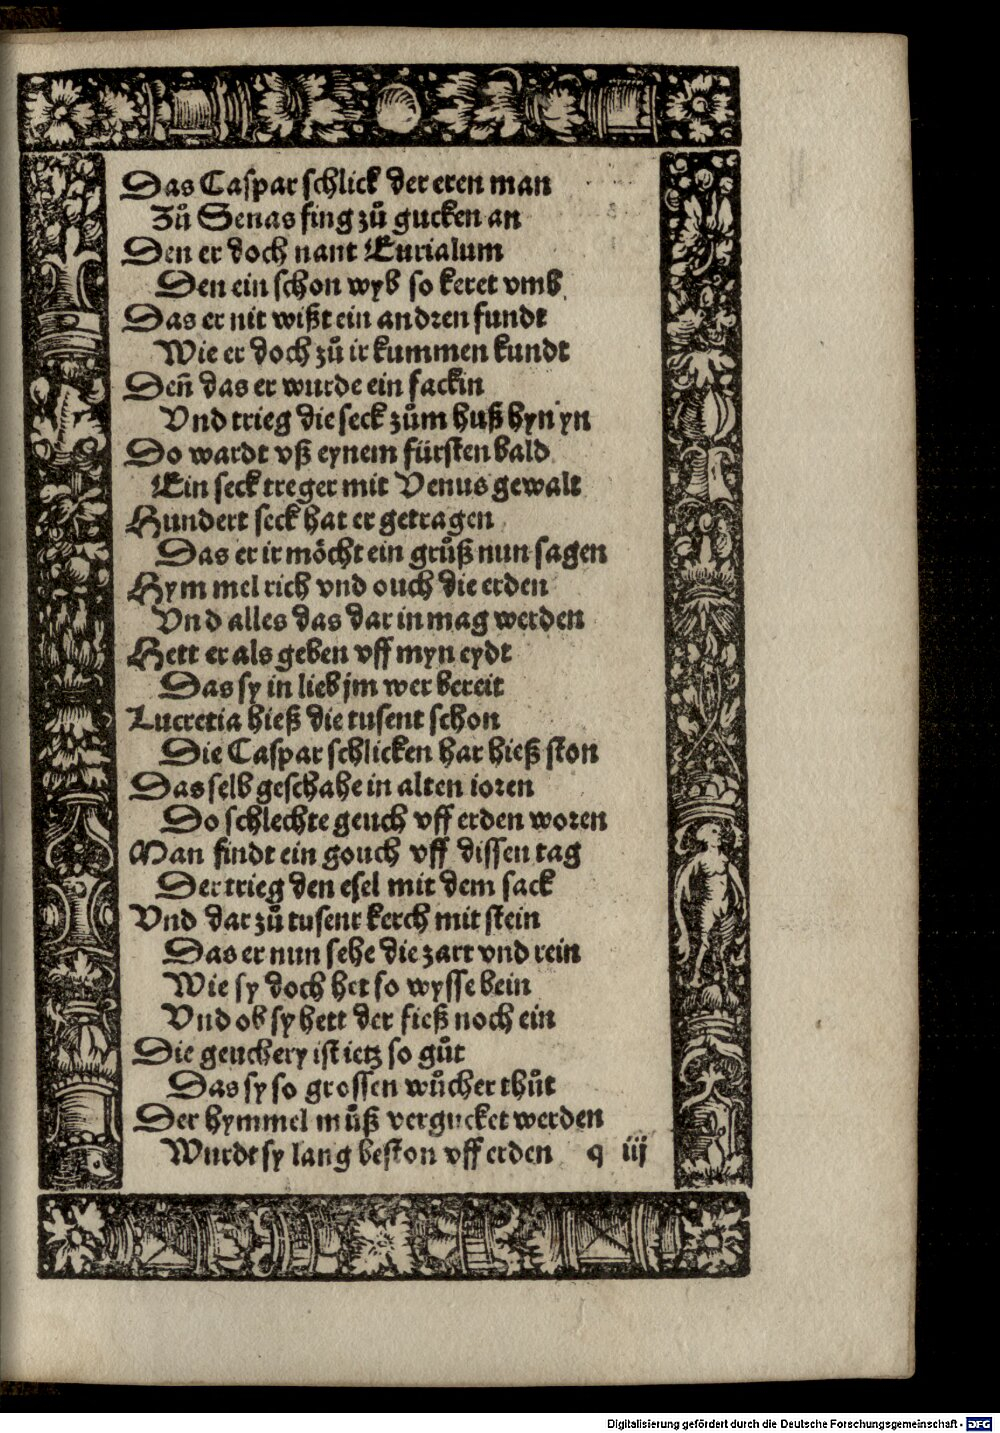 Das Caspar schlick der eren man
Zů Senas fing zů gucken an
Den er doch nant Eurialum
Den ein schon wyb so keret vmb
Das er nit wißt ein andren fundt
Wie er doch zů ir kummen kundt
Deñ das er wurde ein sackin
Vnd trieg die seck zům huß hyn yn
Do wardt vß eynem fürsten bald
Ein seck treger mit Venus gewalt
Hundert seck hat er getragen
Das er ir möcht ein grůß nun sagen
Hym mel rich vnd ouch die erden
Vnd alles das dar in mag werden
Hett er als geben vff myn eydt
Das sy in lieb jm wer bereit
Lucretia hieß die tusent schon
Die Caspar schlicken har hieß ston
Das selb geschahe in alten joren
Do schlechte geuch vff erden woren
Man findt ein gouch vff dissen tag
Der trieg den esel mit dem sack
Vnd dar zů tusent kerch mit stein
Das er nun sehe die zart vnd rein
Wie sy doch het so wysse bein
Vnd ob sy hett der fieß noch ein
Die geuchery ist ietz so gůt
Das sy so grossen wůcher thůt
Der hymmel můß vergucket werden
Wurdt sy lang beston vff erden q iij
Digitalisierung gefördert durch die Deutsche Forschungsgemeinschaft - DFG